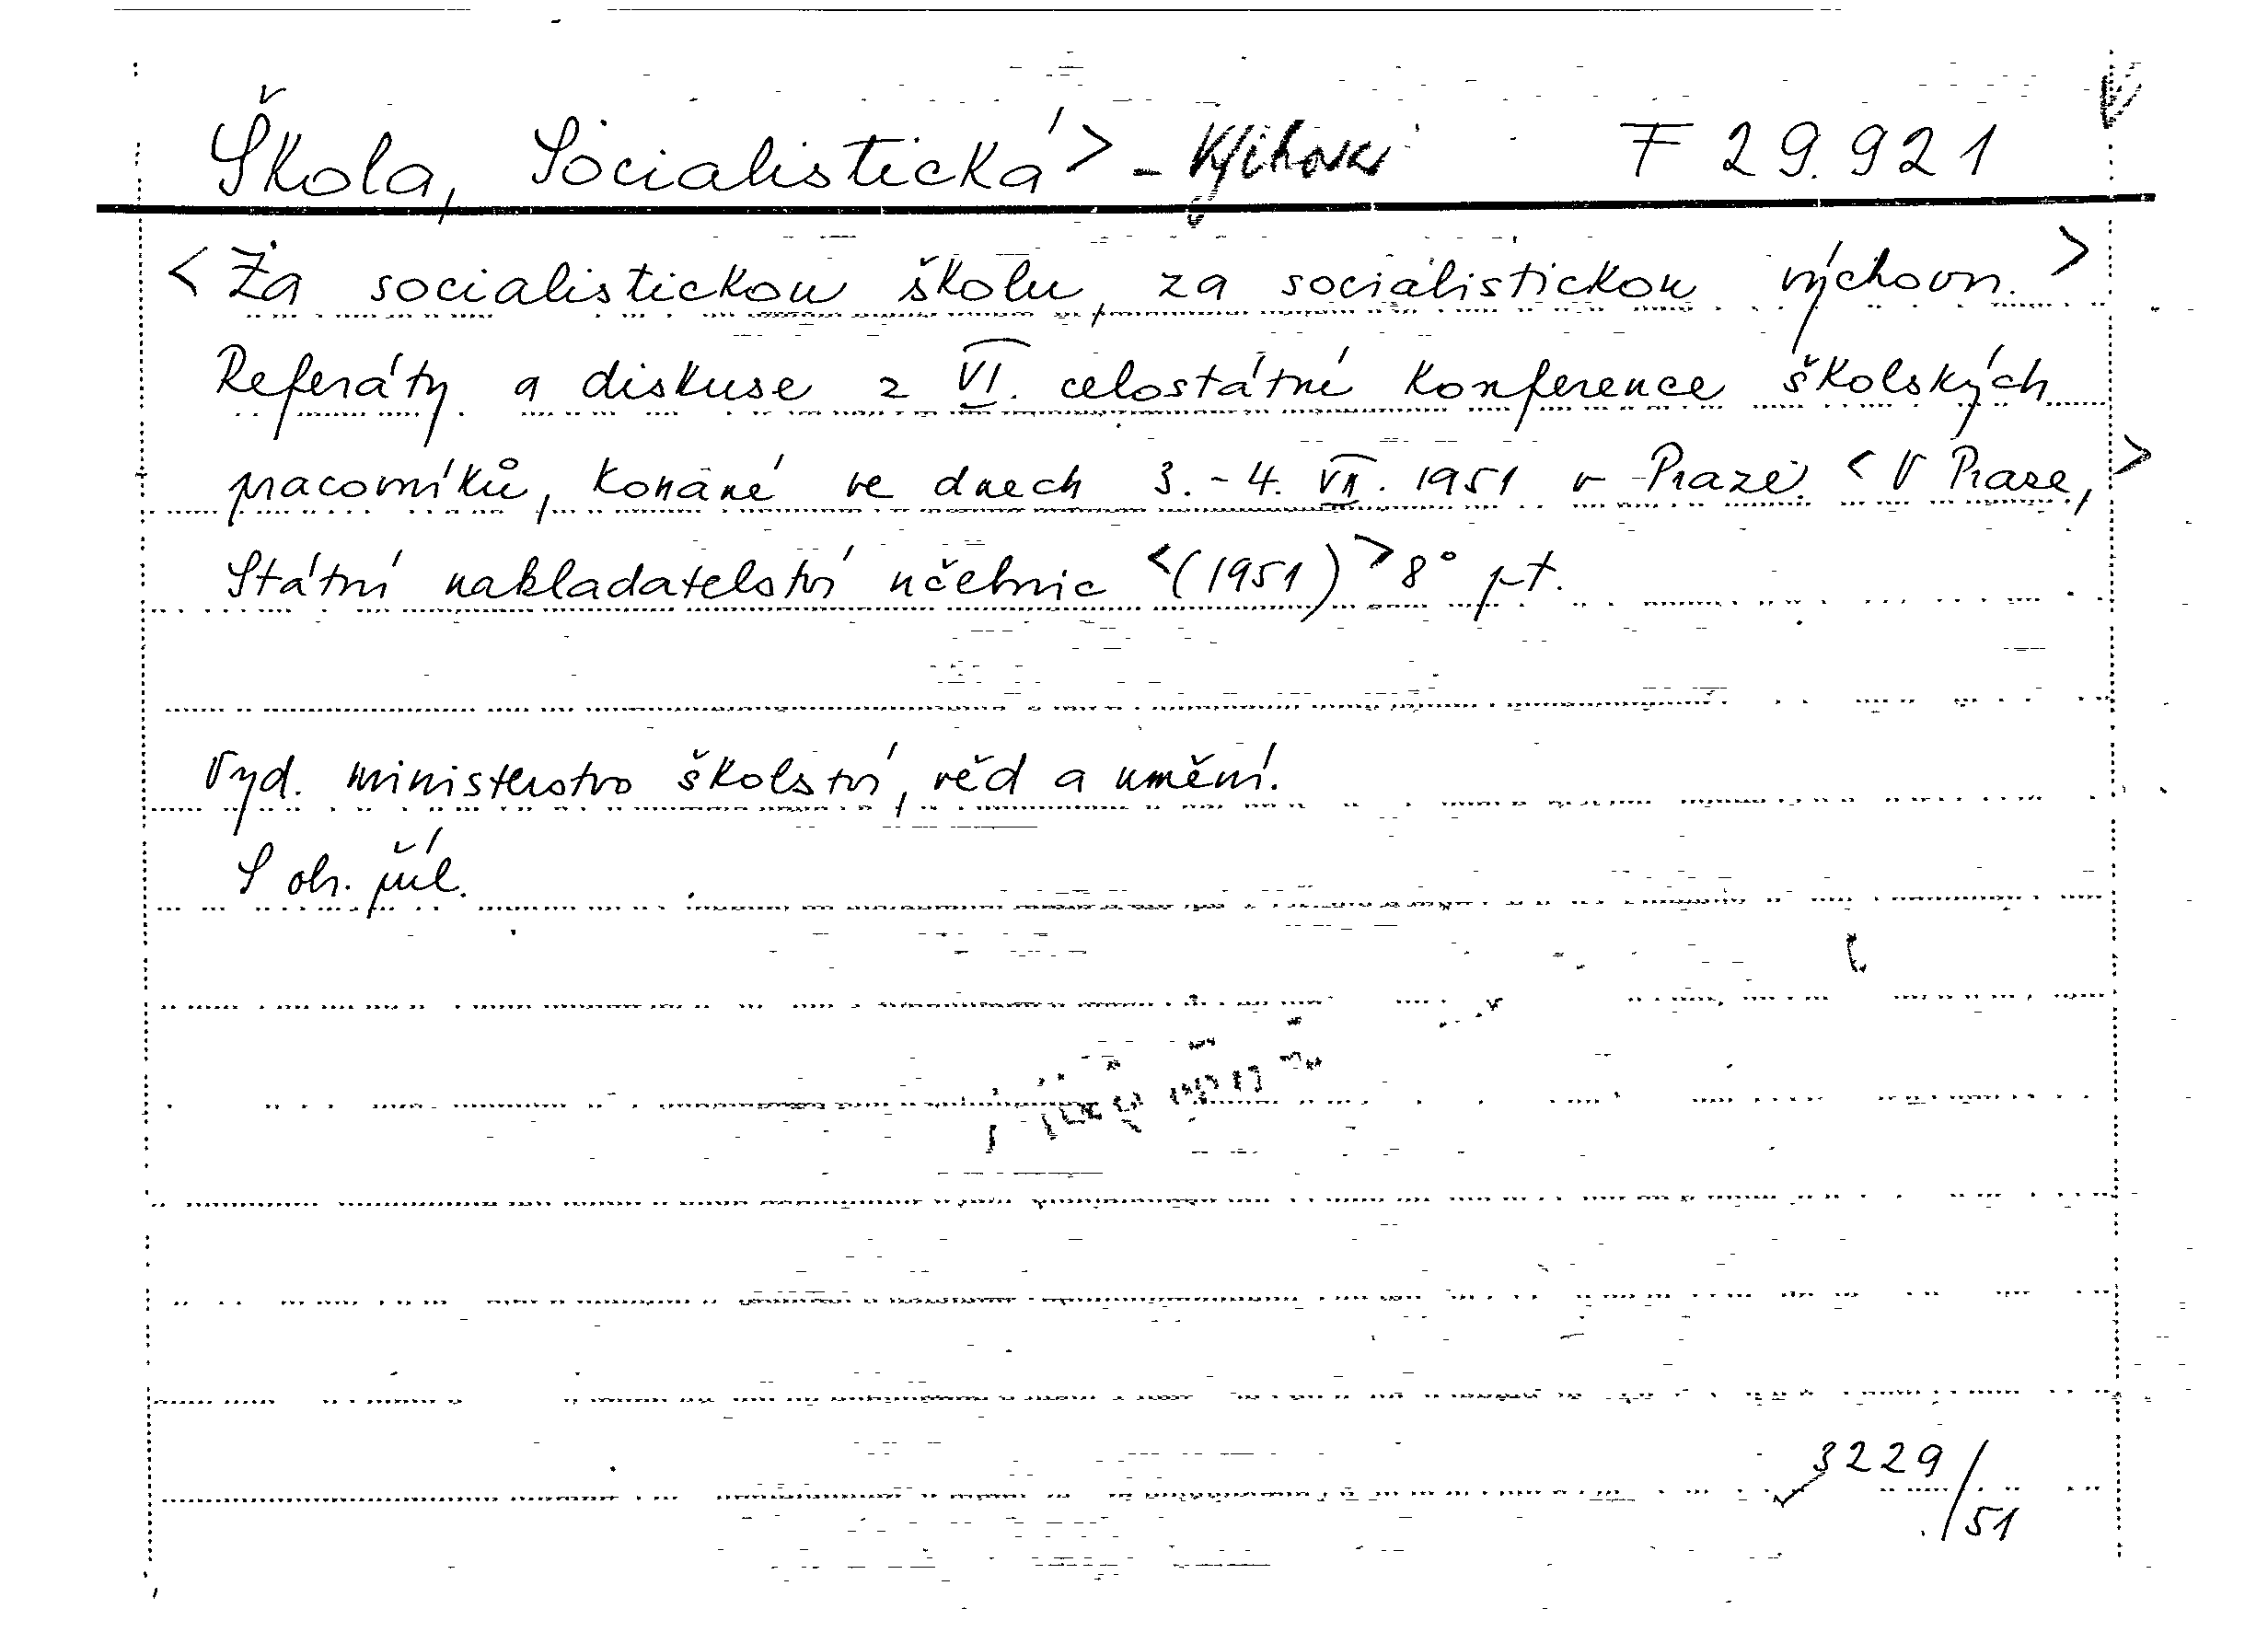 Škola, Socialistická> - Výchova F 29.921
<Za socialistickou školu, za socialistickou výchovu.>
Referáty a diskuse z VI. celostátní konference školských
pracovníků, konané ve dnech 3.-4. VII. 1951 v Praze. <V Praze,>
Státní nakladatelství učebnic <(1951)> 8° pt.
Vyd. ministerstvo školství, věd a umění.
S obr. příl.
3229/51